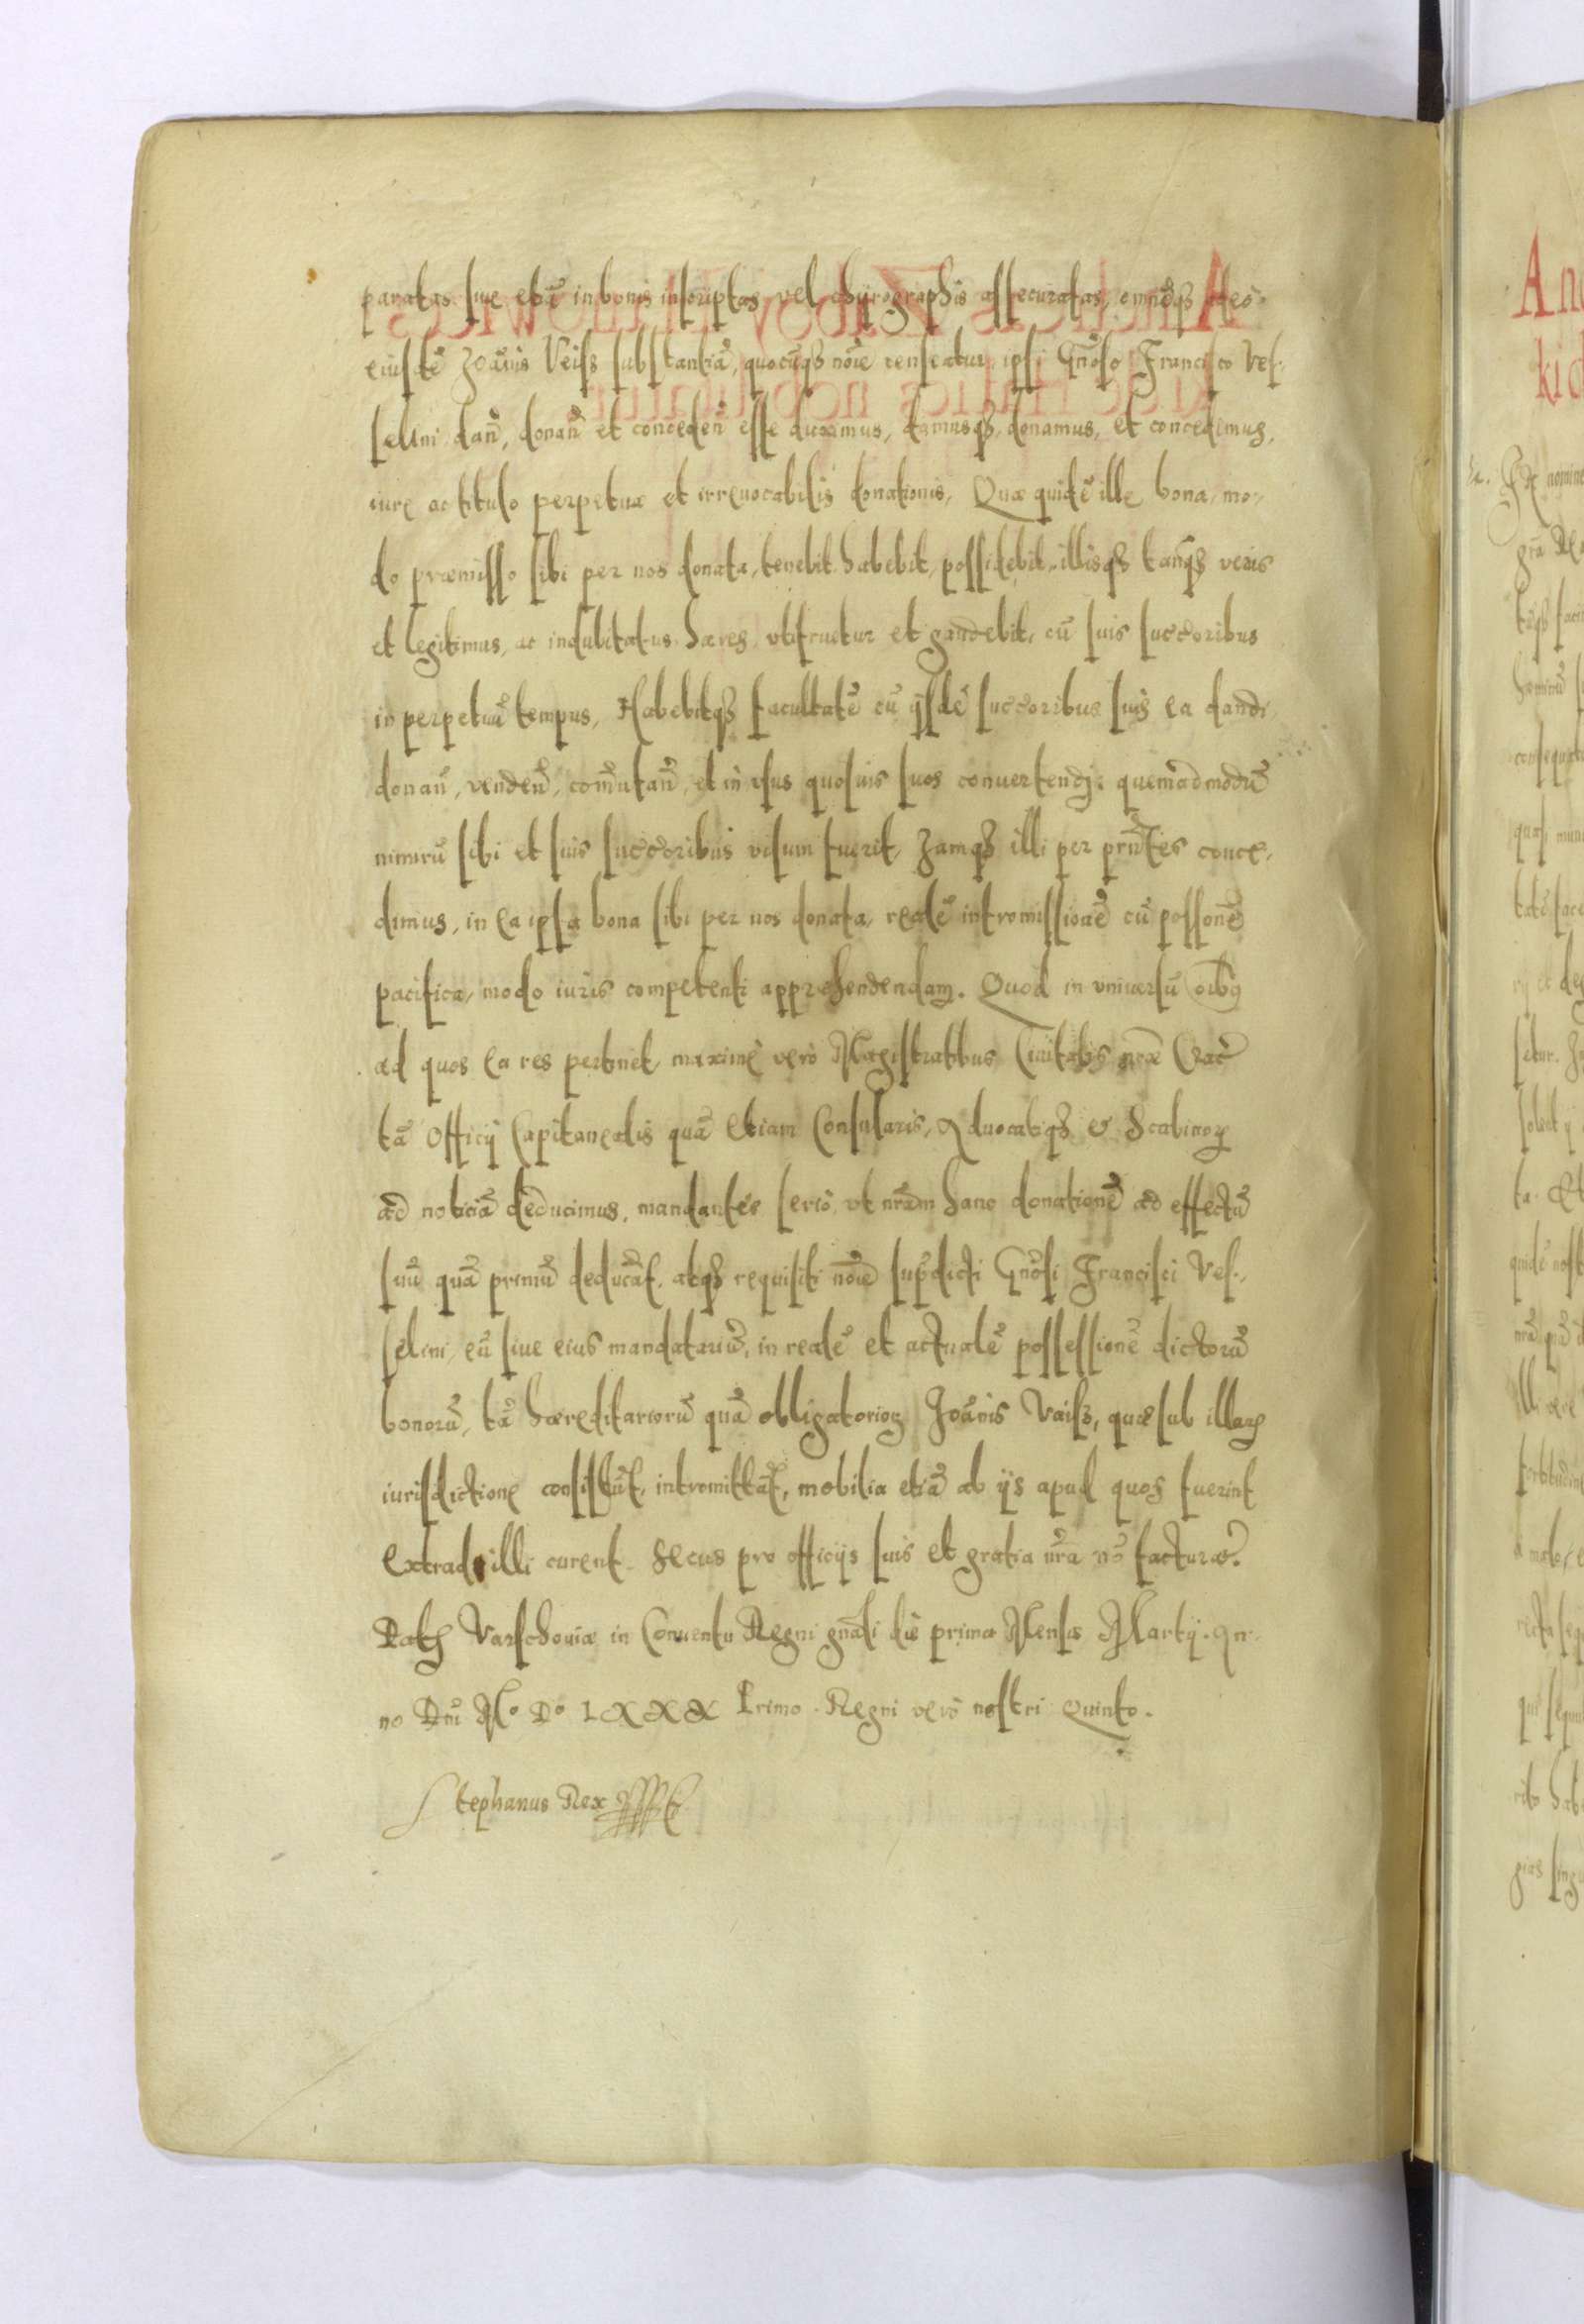 paratas siue etiã in bonis inscriptas vel chyrographis assecuratas, omnẽqȝ adeò
eiusdẽ Joãnis Veiss substantiã, quocũqȝ nõie censeatur, ipsi Gñoso Francisco Ves-
selini dañ, donañ et conceden̄ esse duximus, damusqȝ, donamus, et concedimus,
iure ac titulo perpetuæ et irreuocabilis donationis, Quæ quidẽ ille bona, mo-
do præmisso sibi per nos donata, tenebit habebit, possidebit, illisqȝ tanqȝ verus
et legitimus, ac indubitatus hæres, vtifruetur et gaudebit, cũ suis succoribus
in perpetuũ tempus, Habebitqȝ facultatẽ cũ ijsdẽ succoribus suis ea dandi
donan̄, venden̄, comutan̄, et in vsus quosuis suos conuertendj: quemadmodũ
nimirũ sibi et suis succoribus visum fuerit, Jamqȝ illi per prñtes conce-
dimus, in ea ipsa bona sibi per nos donata, realẽ intromissionẽ cũ possonẽ
pacifica, modo iuris competenti apprehendendam. Quod in vniuersũ oibꝫ
ad quos ea res pertinet, maximè verò Magistratibus Ciuitatis nræ Crac̃
tã Officij Capitanealis quã etiam Consularis, Aduocatiqȝ et Scabinoꝝ
ad noticiã deducimus, mandantes seriò, vt nr̃am hanc donationẽ ad effectũ
suũ quã primũ deducãt, atqȝ requisiti nõie sup̃dicti Gñosi Francisci Ves-
selini, eũ siue eius mandatariũ, in realẽ et actualẽ possessionẽ dictorũ
bonorũ, tã hæreditariorũ quã obligatorioꝝ Joãnis Vaiss, quæ sub illaꝝ
iurisdictione consistũt, intromittãt, mobilia etiã ab ijs apud quos fuerint
extradi illi curent. Secus pro officijs suis et gratia nr̃a nõ facturæ.
Datꝭ Varschouiæ in Conuentu Regni gñali die prima Mensis Martij. An-
no Dñi Mº Dº LXXX Primo. Regni verò nostri Quinto.
Stephanus Rex